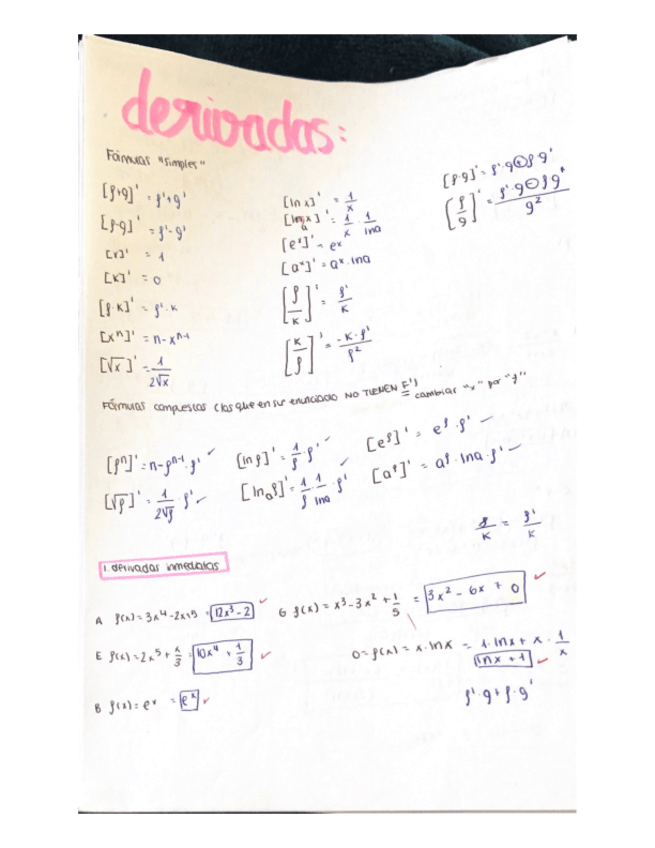 derivadas:
Fórmulas "simples"
[f+g]' = f'+g'
[f-g]' = f'-g'
[x]' = 1
[k]' = 0
[f·k]' = f'·k
[xⁿ]' = n-xⁿ⁻¹
[√x]' = 1/2√x
[ln x]' = 1/x
[logₐx]' = 1/x · 1/lna
[eˣ]' = eˣ
[aˣ]' = aˣ·lna
[f/k]' = f'/k
[k/f]' = -k·f'/f²
[f·g]' = f'·g⊕f·g'
[f/g]' = f'·g⊖f g'/g²
Fórmulas compuestas (las que en su enunciado NO TIENEN f') = cambiar "x" por "f"
[fⁿ]' = n-fⁿ⁻¹·f' ✓
[√f]' = 1/2√f · f' ✓
[ln f]' = 1/f · f' ✓
[lnₐf]' = 1/f · 1/lna · f' ✓
[eᶠ]' = eᶠ·f' ✓
[aᶠ]' = aᶠ·lna·f' ✓
f/k = f'/k
1. derivadas inmediatas
A f(x)= 3x⁴-2x+5 = 12x³-2 ✓
G f(x) = x³-3x²+1/5 = 3x²-6x+0 ✓
E f(x)= 2x⁵+x/3 = 10x⁴+1/3 ✓
O= f(x) = x·lnx = 1·lnx + x·1/x
lnx+1 ✓
B f(x)= eˣ = eˣ ✓
f'·g+f·g'